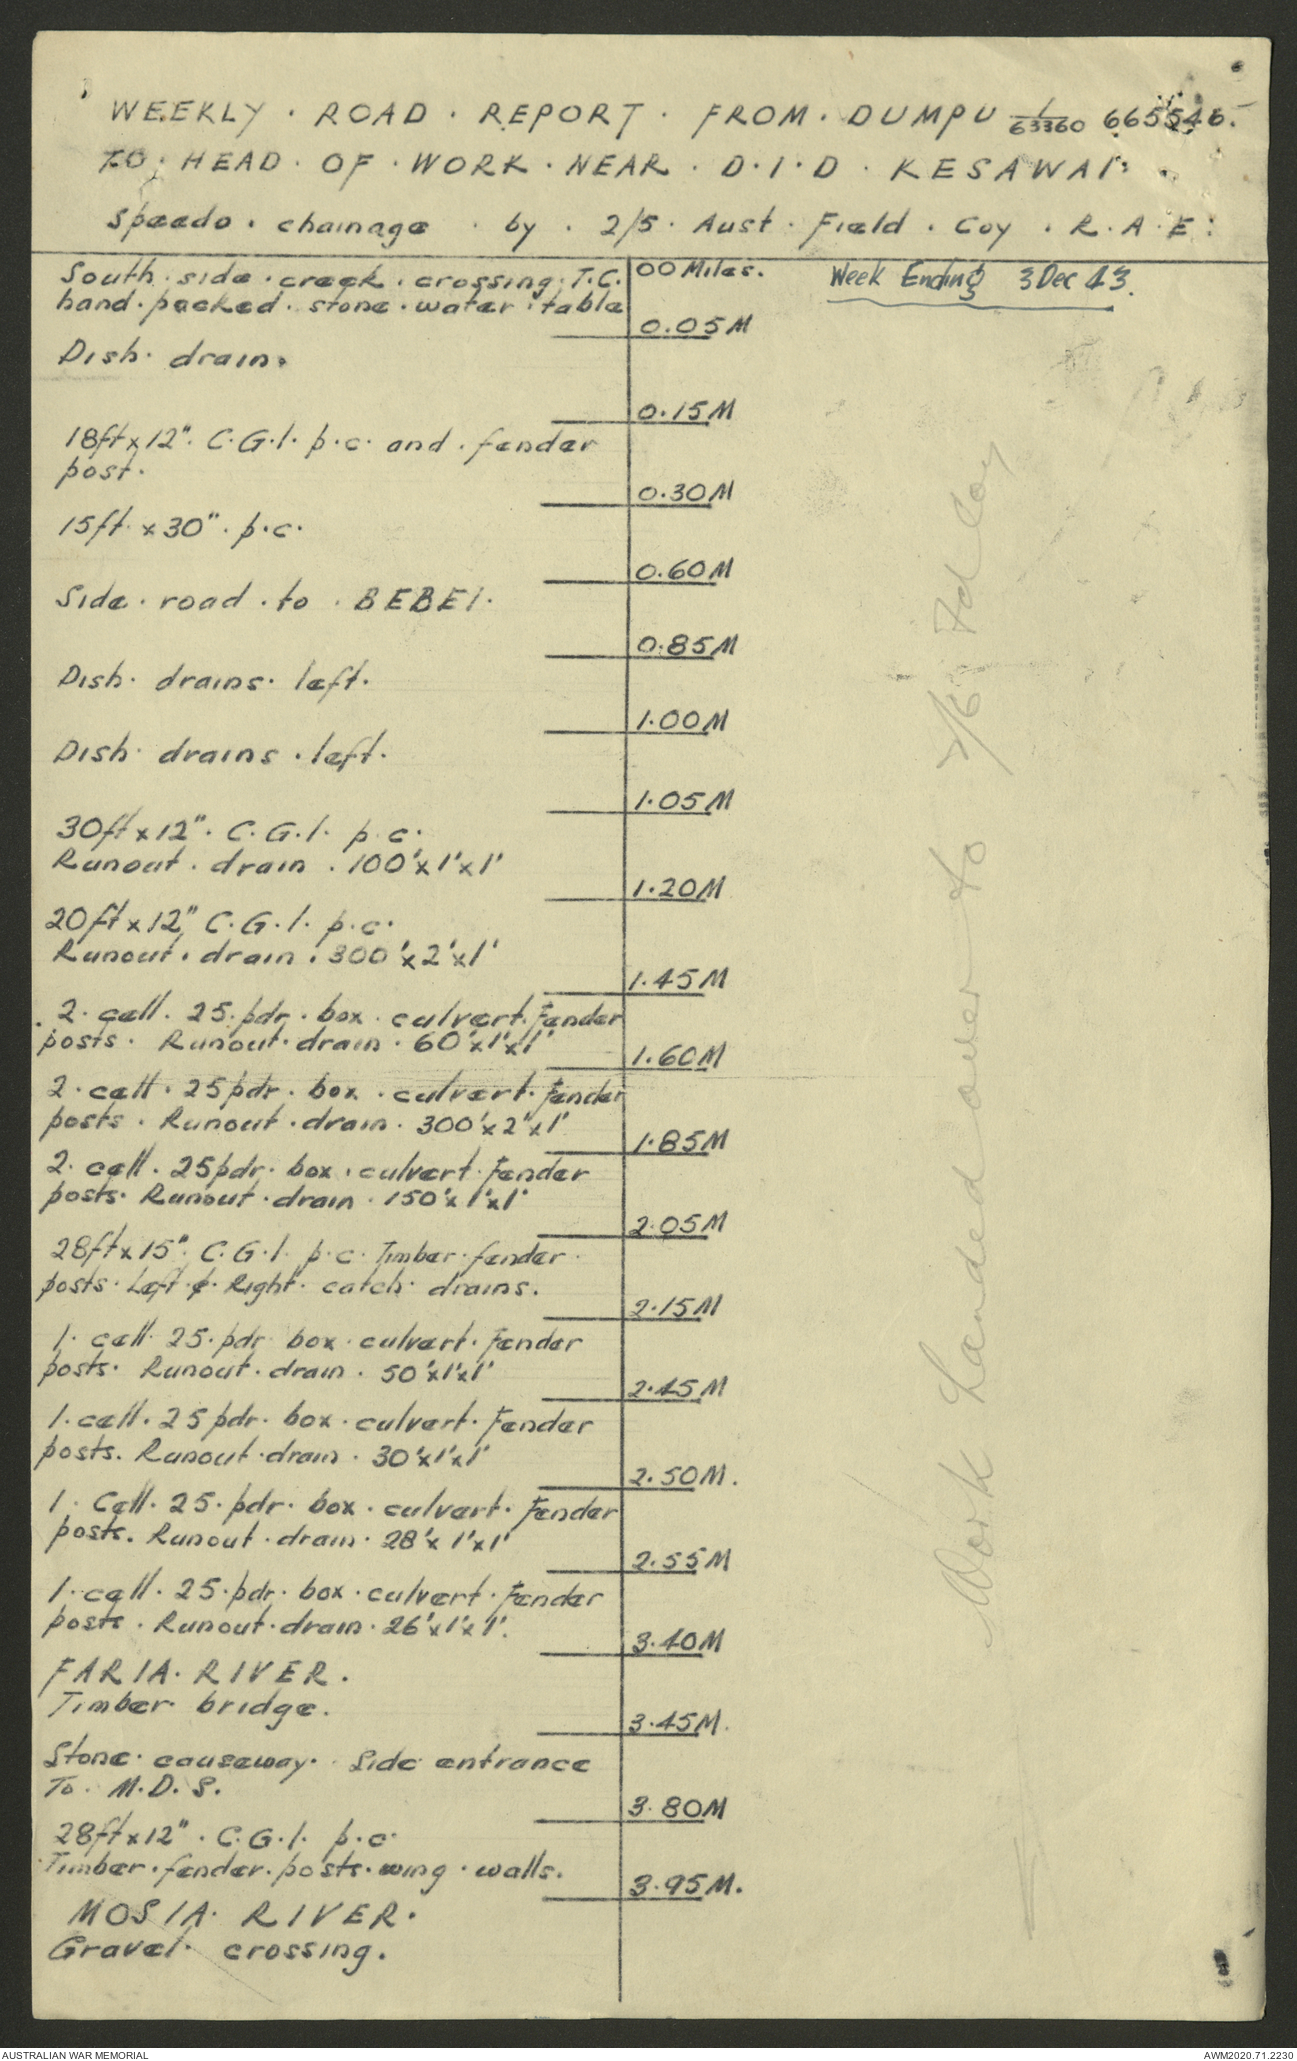 WEEKLY · ROAD · REPORT · FROM · DUMPU 1/63360 665546.
TO · HEAD · OF · WORK · NEAR · D·I·D · KESAWAI
Speedo · chainage · by · 2/5 · Aust · Field · Coy · R·A·E:
South · side · creek · crossing · T.C. 00 Miles.
Week Ending 3 Dec 43.
hand · packed · stone · water · table
0.05M
Dish · drain.
0.15M
18ft x 12" · C·G·I· p·c· and · fender
post.
0.30M
15ft x 30" · p·c·
0.60M
Side · road · to · BEBEI·
0.85M
Dish · drains · left·
1.00M
Dish · drains · left·
1.05M
30ft x 12" · C·G·I· p·c·
Runout · drain · 100'x1'x1'
1.20M
20ft x 12" C·G·I· p·c·
Runout · drain · 300'x2'x1'
1.45M
2 · cell · 25 · pdr · box · culvert · Fender
posts · Runout · drain · 60'x1'x1'
1.60M
2 · cell · 25 pdr · box · culvert · Fender
posts · Runout · drain · 300'x2"x1'
1.85M
2 · cell · 25 pdr · box · culvert · Fender
posts · Runout · drain · 150'x1'x1'
2.05M
28ft x 15" · C·G·I· p·c· Timber · fender ·
posts · Left · & · Right · catch · drains.
2.15M
1 · cell · 25 · pdr · box · culvert · Fender
posts · Runout · drain · 50'x1'x1'
2.45M
1 · cell · 25 pdr · box · culvert · Fender
posts. Runout · drain · 30'x1'x1'
2.50M.
1 · Cell · 25 · pdr · box · culvert · Fender
posts. Runout · drain · 28'x1'x1'
2.55M
1 · cell · 25 · pdr · box · culvert · Fender
posts · Runout · drain · 26'x1'x1'.
3.40M
FARIA · RIVER.
Timber · bridge.
3.45M.
Stone · causeway · Side entrance
To · M.D.S.
3.80M
28ft x 12" · C·G·I· p·c·
Timber · fender · posts · wing · walls.
3.95M.
MOSIA · RIVER.
Gravel · crossing.
Work handed over to 2/6 Fd Coy
AUSTRALIAN WAR MEMORIAL
AWM2020.71.2230